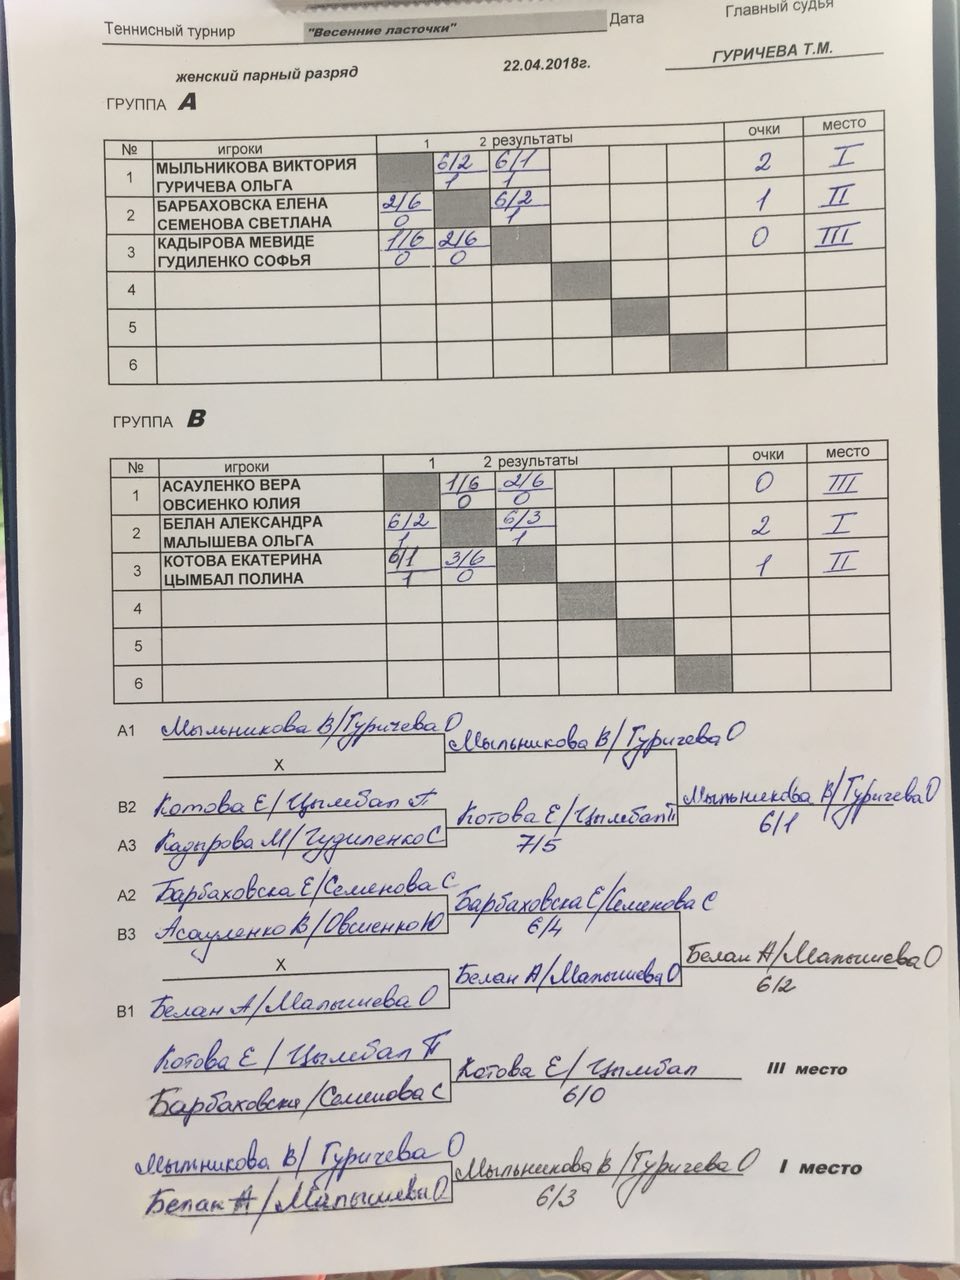 Теннисный турнир "Весенние ласточки" Дата Главный судья
женский парный разряд 22.04.2018г. ГУРИЧЕВА Т.М.
ГРУППА А
№ игроки 1 2 результаты очки место
1 МЫЛЬНИКОВА ВИКТОРИЯ 6/2 6/1 2 I
ГУРИЧЕВА ОЛЬГА 1 1
2 БАРБАХОВСКА ЕЛЕНА 2/6 6/2 1 II
СЕМЕНОВА СВЕТЛАНА 0 1
3 КАДЫРОВА МЕВИДЕ 1/6 2/6 0 III
ГУДИЛЕНКО СОФЬЯ 0 0
4
5
6
ГРУППА В
№ игроки 1 2 результаты очки место
1 АСАУЛЕНКО ВЕРА 1/6 2/6 0 III
ОВСИЕНКО ЮЛИЯ 0 0
2 БЕЛАН АЛЕКСАНДРА 6/2 6/3 2 I
МАЛЫШЕВА ОЛЬГА 1 1
3 КОТОВА ЕКАТЕРИНА 6/1 3/6 1 II
ЦЫМБАЛ ПОЛИНА 1 0
4
5
6
А1 Мыльникова В/Гуричева О
Мыльникова В/Гуричева О
Х
Мыльникова В/Гуричева О
6/1
В2 Котова Е/Цымбал П
Котова Е/Цымбал П
7/5
А3 Кадырова М/Гудиленко С
А2 Барбаховска Е/Семенова С
Барбаховска Е/Семенова С
6/4
В3 Асауленко В/Овсиенко Ю
Белан А/Малышева О
6/2
Х
Белан А/Малышева О
В1 Белан А/Малышева О
Котова Е/Цымбал П
Котова Е/Цымбал III место
6/0
Барбаховска/Семенова С
Мыльникова В/Гуричева О
Мыльникова В/Гуричева О I место
6/3
Белан А/Малышева О